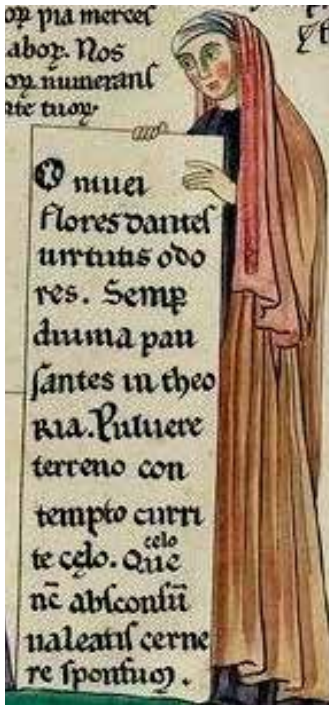 oꝝ pia merceſ
aboꝝ. Nos
oꝝ numeranſ
te tuoꝝ
O niuei
flores dantes
uirtutis odo
res. Semꝑ
diuina pau
ſantes in theo
RIA. Puluere
terreno con
tempto curri
te cęlo. Que
celo
nc̄ abſconſū
ualeatiſ cerne
re ſponſum.